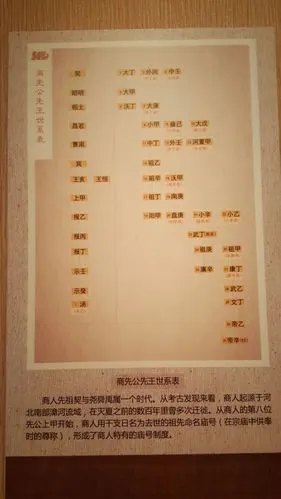 商先公先王世系表
契 大丁 外丙 中壬
昭明 大甲
相土 沃丁 大庚
昌若 小甲 雍己 大戊
曹圉 中丁 外壬 河亶甲
冥 祖乙
王亥 王恒 祖辛 沃甲
上甲 祖丁 南庚
报乙 阳甲 盘庚 小辛 小乙
报丙 武丁
报丁 祖庚 祖甲
示壬 廪辛 康丁
示癸 武乙
汤 文丁
帝乙
帝辛
商先公先王世系表
商人先祖契与尧舜禹属一个时代。从考古发现来看，商人起源于河
北南部漳河流域，在灭夏之前的数百年里曾多次迁徙。从商人的第八位
先公上甲开始，商人用干支日名为去世的祖先命名庙号（在宗庙中供奉
时的尊称），形成了商人特有的庙号制度。